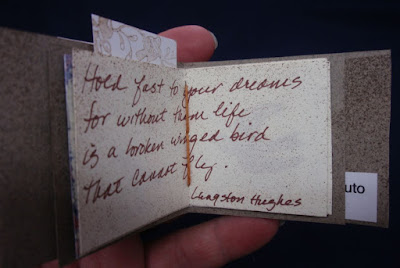 Hold fast to your dreams
for without them life
is a broken winged bird
that cannot fly.
Langston Hughes
uto